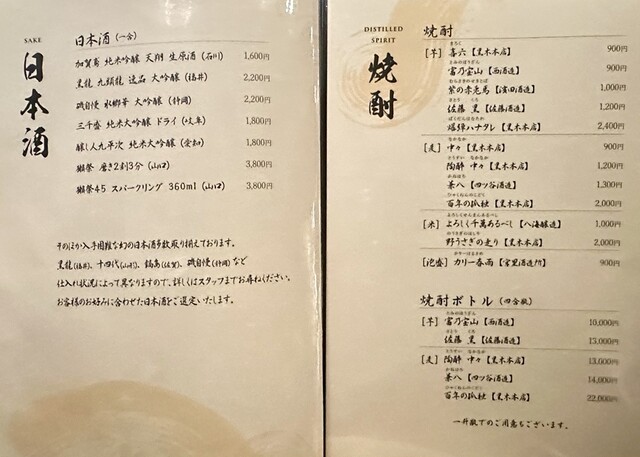 SAKE
日本酒
日本酒（一合）
加賀鳶 純米吟醸 天翔 生原酒（石川） 1,600円
黒龍 九頭龍 逸品 大吟醸（福井） 2,200円
磯自慢 水響華 大吟醸（静岡） 2,200円
三千盛 純米大吟醸 ドライ（岐阜） 1,800円
醸し人九平次 純米大吟醸（愛知） 1,800円
獺祭 磨き2割3分（山口） 3,800円
獺祭45 スパークリング 360ml（山口） 3,800円
そのほか入手困難な幻の日本酒多数取り揃えております。
黒龍(福井)、十四代(山形)、鍋島(佐賀)、磯自慢(静岡) など
仕入れ状況によって異なりますので、詳しくはスタッフまでお尋ねください。
お客様のお好みに合わせた日本酒をご選定いたします。
DISTILLED
SPIRIT
焼酎
焼酎
[芋] 喜六【黒木本店】 900円
富乃宝山【西酒造】 900円
紫の赤兎馬【濵田酒造】 1,000円
佐藤 黒【佐藤酒造】 1,200円
爆弾ハナタレ【黒木本店】 2,400円
[麦] 中々【黒木本店】 900円
陶酔 中々【黒木本店】 1,200円
兼八【四ツ谷酒造】 1,300円
百年の孤独【黒木本店】 2,000円
[米] よろしく千萬あるべし【八海醸造】 1,000円
野うさぎの走り【黒木本店】 2,000円
[泡盛] カリー春雨【宮里酒造所】 900円
焼酎ボトル（四合瓶）
[芋] 富乃宝山【西酒造】 10,000円
佐藤 黒【佐藤酒造】 13,000円
[麦] 陶酔 中々【黒木本店】 13,000円
兼八【四ツ谷酒造】 14,000円
百年の孤独【黒木本店】 22,000円
一升瓶でのご用意もございます。